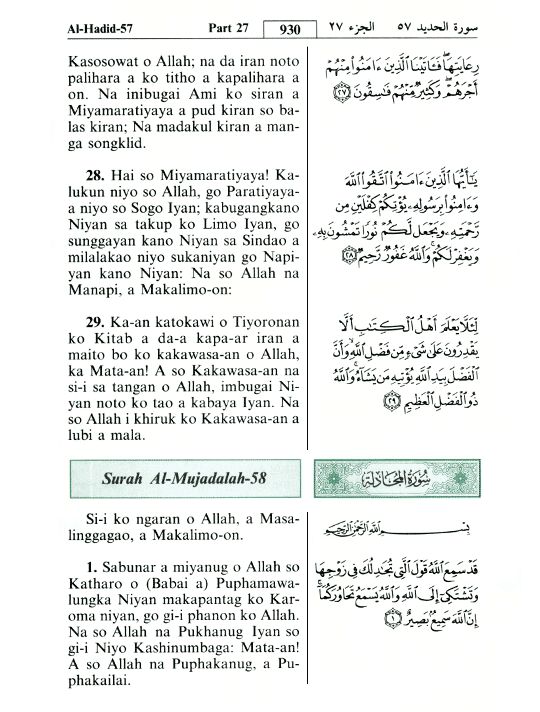 Al-Hadid-57 Part 27 930 الجزء ٢٧ سورة الحديد ٥٧
Kasosowat o Allah; na da iran noto
palihara a ko titho a kapalihara a
on. Na inibugai Ami ko siran a
Miyamaratiyaya a pud kiran so ba-
las kiran; Na madakul kiran a man-
ga songklid.
28. Hai so Miyamaratiyaya! Ka-
lukun niyo so Allah, go Paratiyaya-
a niyo so Sogo Iyan; kabugangkano
Niyan sa takup ko Limo Iyan, go
sunggayan kano Niyan sa Sindao a
milalakao niyo sukaniyan go Napi-
yan kano Niyan: Na so Allah na
Manapi, a Makalimo-on:
29. Ka-an katokawi o Tiyoronan
ko Kitab a da-a kapa-ar iran a
maito bo ko kakawasa-an o Allah,
ka Mata-an! A so Kakawasa-an na
si-i sa tangan o Allah, imbugai Ni-
yan noto ko tao a kabaya Iyan. Na
so Allah i khiruk ko Kakawasa-an a
lubi a mala.
رِعَايَتِهَا ۖ فَـَٔاتَيْنَا ٱلَّذِينَ ءَامَنُوا۟ مِنْهُمْ
أَجْرَهُمْ ۖ وَكَثِيرٌ مِّنْهُمْ فَـٰسِقُونَ ﴿٢٧﴾
يَـٰٓأَيُّهَا ٱلَّذِينَ ءَامَنُوا۟ ٱتَّقُوا۟ ٱللَّهَ
وَءَامِنُوا۟ بِرَسُولِهِۦ يُؤْتِكُمْ كِفْلَيْنِ مِن
رَّحْمَتِهِۦ وَيَجْعَل لَّكُمْ نُورًا تَمْشُونَ بِهِۦ
وَيَغْفِرْ لَكُمْ ۚ وَٱللَّهُ غَفُورٌ رَّحِيمٌ ﴿٢٨﴾
لِّئَلَّا يَعْلَمَ أَهْلُ ٱلْكِتَـٰبِ أَلَّا
يَقْدِرُونَ عَلَىٰ شَىْءٍ مِّن فَضْلِ ٱللَّهِ ۙ وَأَنَّ
ٱلْفَضْلَ بِيَدِ ٱللَّهِ يُؤْتِيهِ مَن يَشَآءُ ۚ وَٱللَّهُ
ذُو ٱلْفَضْلِ ٱلْعَظِيمِ ﴿٢٩﴾
Surah Al-Mujadalah-58
سُورَةُ المُجَادلة
Si-i ko ngaran o Allah, a Masa-
linggagao, a Makalimo-on.
1. Sabunar a miyanug o Allah so
Katharo o (Babai a) Puphamawa-
lungka Niyan makapantag ko Kar-
oma niyan, go gi-i phanon ko Allah.
Na so Allah na Pukhanug Iyan so
gi-i Niyo Kashinumbaga: Mata-an!
A so Allah na Puphakanug, a Pu-
phakailai.
بِسْمِ ٱللَّهِ ٱلرَّحْمَـٰنِ ٱلرَّحِيمِ
قَدْ سَمِعَ ٱللَّهُ قَوْلَ ٱلَّتِى تُجَـٰدِلُكَ فِى زَوْجِهَا
وَتَشْتَكِىٓ إِلَى ٱللَّهِ وَٱللَّهُ يَسْمَعُ تَحَاوُرَكُمَآ ۚ
إِنَّ ٱللَّهَ سَمِيعٌۢ بَصِيرٌ ﴿١﴾